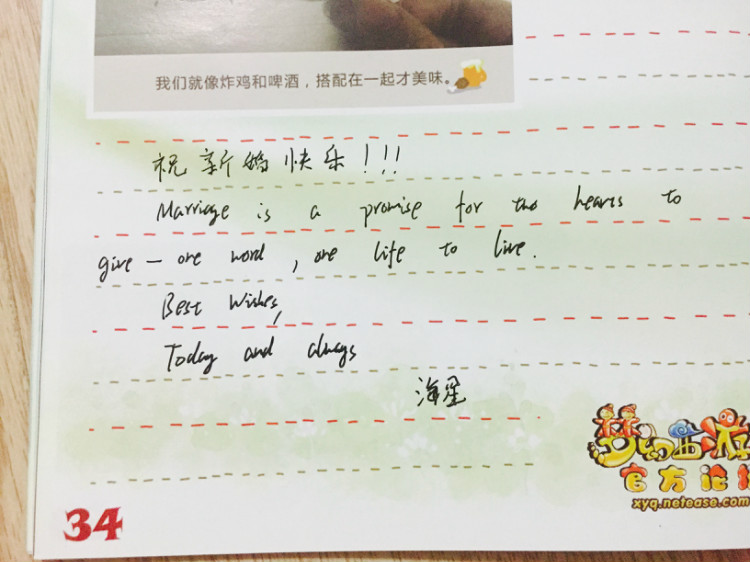 我们就像炸鸡和啤酒，搭配在一起才美味。
祝新婚快乐!!!
Marriage is a promise for two hearts to
give — one word, one life to live.
Best Wishes,
Today and always
海星
梦幻西游
官方论坛
xyq.netease.com
34